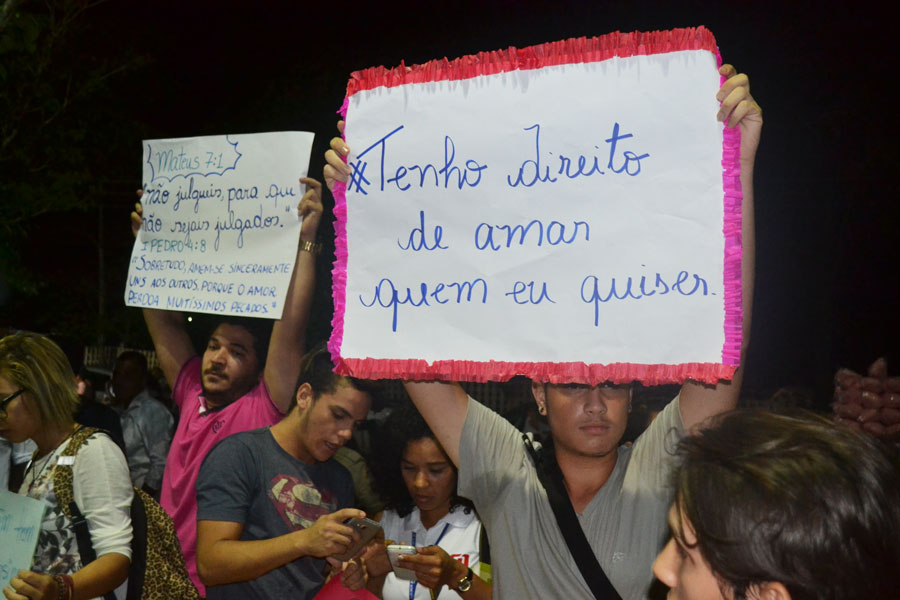 Mateus 7:1
"não julgueis, para que
não sejais julgados."
I PEDRO 4:8
"SOBRETUDO, AMEM-SE SINCERAMENTE
UNS AOS OUTROS. PORQUE O AMOR
PERDOA MUITÍSSIMOS PECADOS."
#Tenho direito
de amar
quem eu quiser.